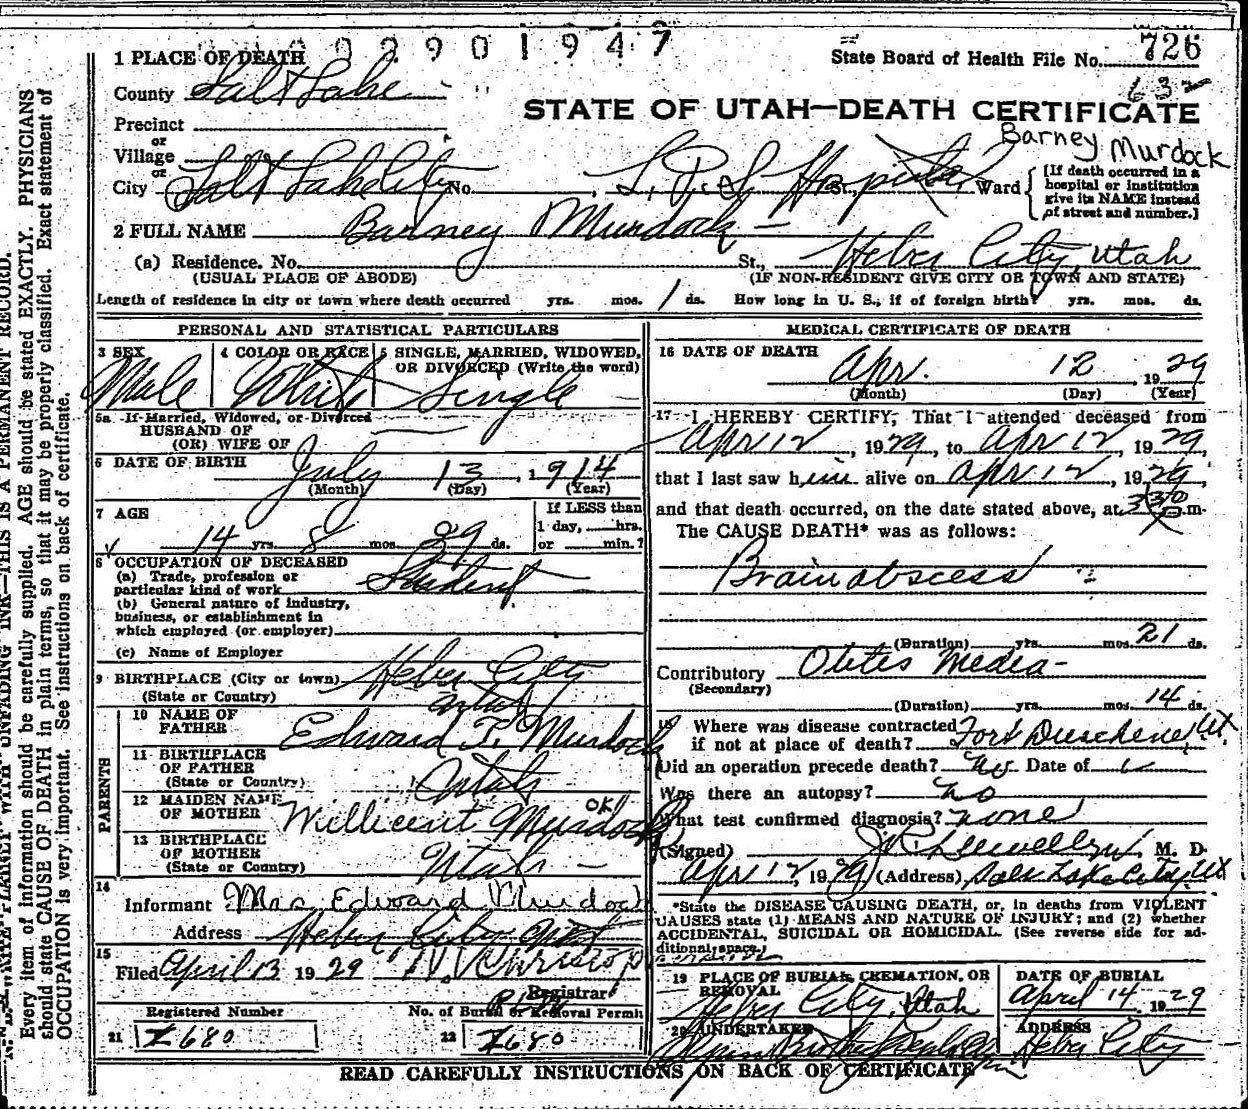 002901947
State Board of Health File No. 726
632
1 PLACE OF DEATH
County Salt Lake
STATE OF UTAH—DEATH CERTIFICATE
Barney Murdock
Precinct
or
Village
or
City Salt Lake City No. L. D. S. Hospital St. Ward
[If death occurred in a
hospital or institution
give its NAME instead
of street and number.]
2 FULL NAME Barney Murdock
(a) Residence. No. St., Heber City, Utah
(USUAL PLACE OF ABODE) (IF NON-RESIDENT GIVE CITY OR TOWN AND STATE)
Length of residence in city or town where death occurred yrs. mos. 1 ds. How long in U. S., if of foreign birth? yrs. mos. ds.
PERSONAL AND STATISTICAL PARTICULARS
3 SEX Male
4 COLOR OR RACE White
5 SINGLE, MARRIED, WIDOWED,
OR DIVORCED (Write the word)
Single
5a If Married, Widowed, or Divorced
HUSBAND OF
(OR) WIFE OF
6 DATE OF BIRTH July 13, 1914
(Month) (Day) (Year)
7 AGE
14 yrs. 8 mos. 29 ds.
If LESS than
1 day, hrs.
or min.?
8 OCCUPATION OF DECEASED
(a) Trade, profession or
particular kind of work Student
(b) General nature of industry,
business, or establishment in
which employed (or employer)
(c) Name of Employer
9 BIRTHPLACE (City or town) Heber City
(State or Country) Utah
PARENTS
10 NAME OF
FATHER Edward T. Murdock
11 BIRTHPLACE
OF FATHER
(State or Country) Utah
12 MAIDEN NAME
OF MOTHER Millicent Murdock OK
13 BIRTHPLACE
OF MOTHER
(State or Country) Utah
14
Informant Mrs Edward Murdock
Address Heber City Utah
15
Filed April 13 1929
Registrar
Registered Number
21 Z680
No. of Burial or Removal Permit
22 Z680
MEDICAL CERTIFICATE OF DEATH
16 DATE OF DEATH
Apr. 12, 1929
(Month) (Day) (Year)
17 I HEREBY CERTIFY, That I attended deceased from
Apr 12, 1929, to Apr 12, 1929,
that I last saw him alive on Apr 12, 1929,
and that death occurred, on the date stated above, at 3 30 P.m.
The CAUSE DEATH* was as follows:
Brain abscess
(Duration) yrs. mos. 21 ds.
Contributory Otites Media
(Secondary)
(Duration) yrs. mos. 14 ds.
18 Where was disease contracted
if not at place of death? Fort Duschene, Ut.
Did an operation precede death? no Date of
Was there an autopsy? no
What test confirmed diagnosis? none
(Signed) J. R. Llewellyn, M. D.
Apr 12, 1929 (Address) Salt Lake City, Ut
*State the DISEASE CAUSING DEATH, or, in deaths from VIOLENT
CAUSES state (1) MEANS AND NATURE OF INJURY; and (2) whether
ACCIDENTAL, SUICIDAL OR HOMICIDAL. (See reverse side for ad-
ditional space.)
19 PLACE OF BURIAL, CREMATION, OR
REMOVAL
Heber City, Utah
DATE OF BURIAL
April 14 1929
20 UNDERTAKER
ADDRESS
Heber City
READ CAREFULLY INSTRUCTIONS ON BACK OF CERTIFICATE
N. B.—WRITE PLAINLY WITH UNFADING INK—THIS IS A PERMANENT RECORD.
Every item of information should be carefully supplied. AGE should be stated EXACTLY. PHYSICIANS
should state CAUSE OF DEATH in plain terms, so that it may be properly classified. Exact statement of
OCCUPATION is very important. See instructions on back of certificate.